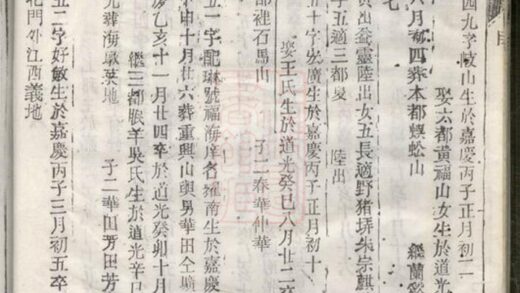 四九字岐山生於嘉慶丙子正月初二
娶六都黃福山女生於道光
八月初四葬本都蜈蚣山
繼蘭
七
黃出益靈陸出女五長適野猪垅朱宗麒
子五適三都
陸出
五十字安廣生於嘉慶丙子正月初十
娶王氏生於道光癸巳八月廿二卒
都裡石馬山
子二春華仲華
五一字配琳號福海庠名維南生於嘉慶
申十月廿六葬重興山與男華田仝
光癸亥十一月廿四卒於道光癸卯十月
繼三都眼羊吳氏生於道光辛
海墩葉地
子二華田芳田芳
五二字好敏生於嘉慶丙子三月初五卒
北門外江西義地